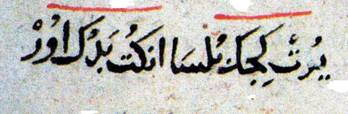 يُرتْ كِجِك بُلسَا انَكُتْ بَدُكْ اوُرْ